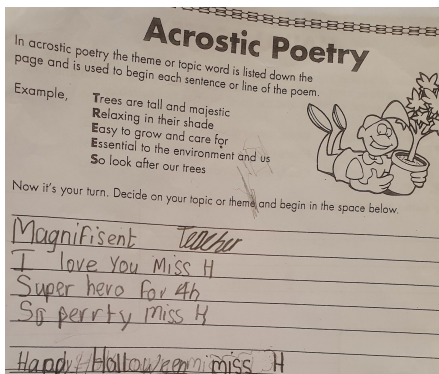 Acrostic Poetry
In acrostic poetry the theme or topic word is listed down the
page and is used to begin each sentence or line of the poem.
Example,
Trees are tall and majestic
Relaxing in their shade
Easy to grow and care for
Essential to the environment and us
So look after our trees
Now it's your turn. Decide on your topic or theme and begin in the space below.
Magnifisent Teacher
I love You Miss H
Super hero for 4h
So perrty Miss H
Happy Halloween miss H